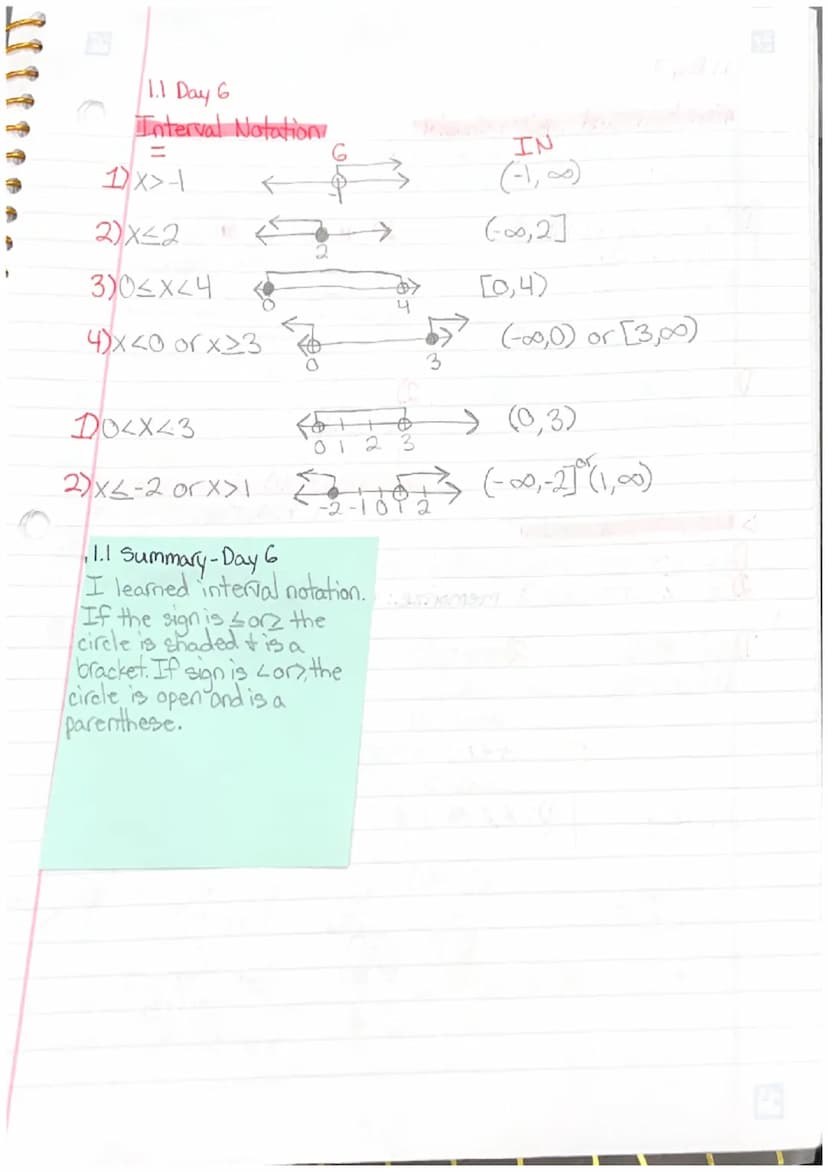 1.1 Day 6
Interval Notation
= G IN
1) x>-1 -1 (-1, ∞)
2) x≤2 2 (-∞,2]
3) 0≤x<4 0 4 [0,4)
4) x<0 or x≥3 0 3 (-∞,0) or [3,∞)
1) 0<x<3 0 1 2 3 (0,3)
2) x≤-2 or x>1 -2 -1 0 1 2 (-∞,-2] or (1,∞)
1.1 Summary-Day 6
I learned interval notation.
If the sign is ≤ or ≥ the
circle is shaded + is a
bracket. If sign is < or >, the
circle is open and is a
parenthese.